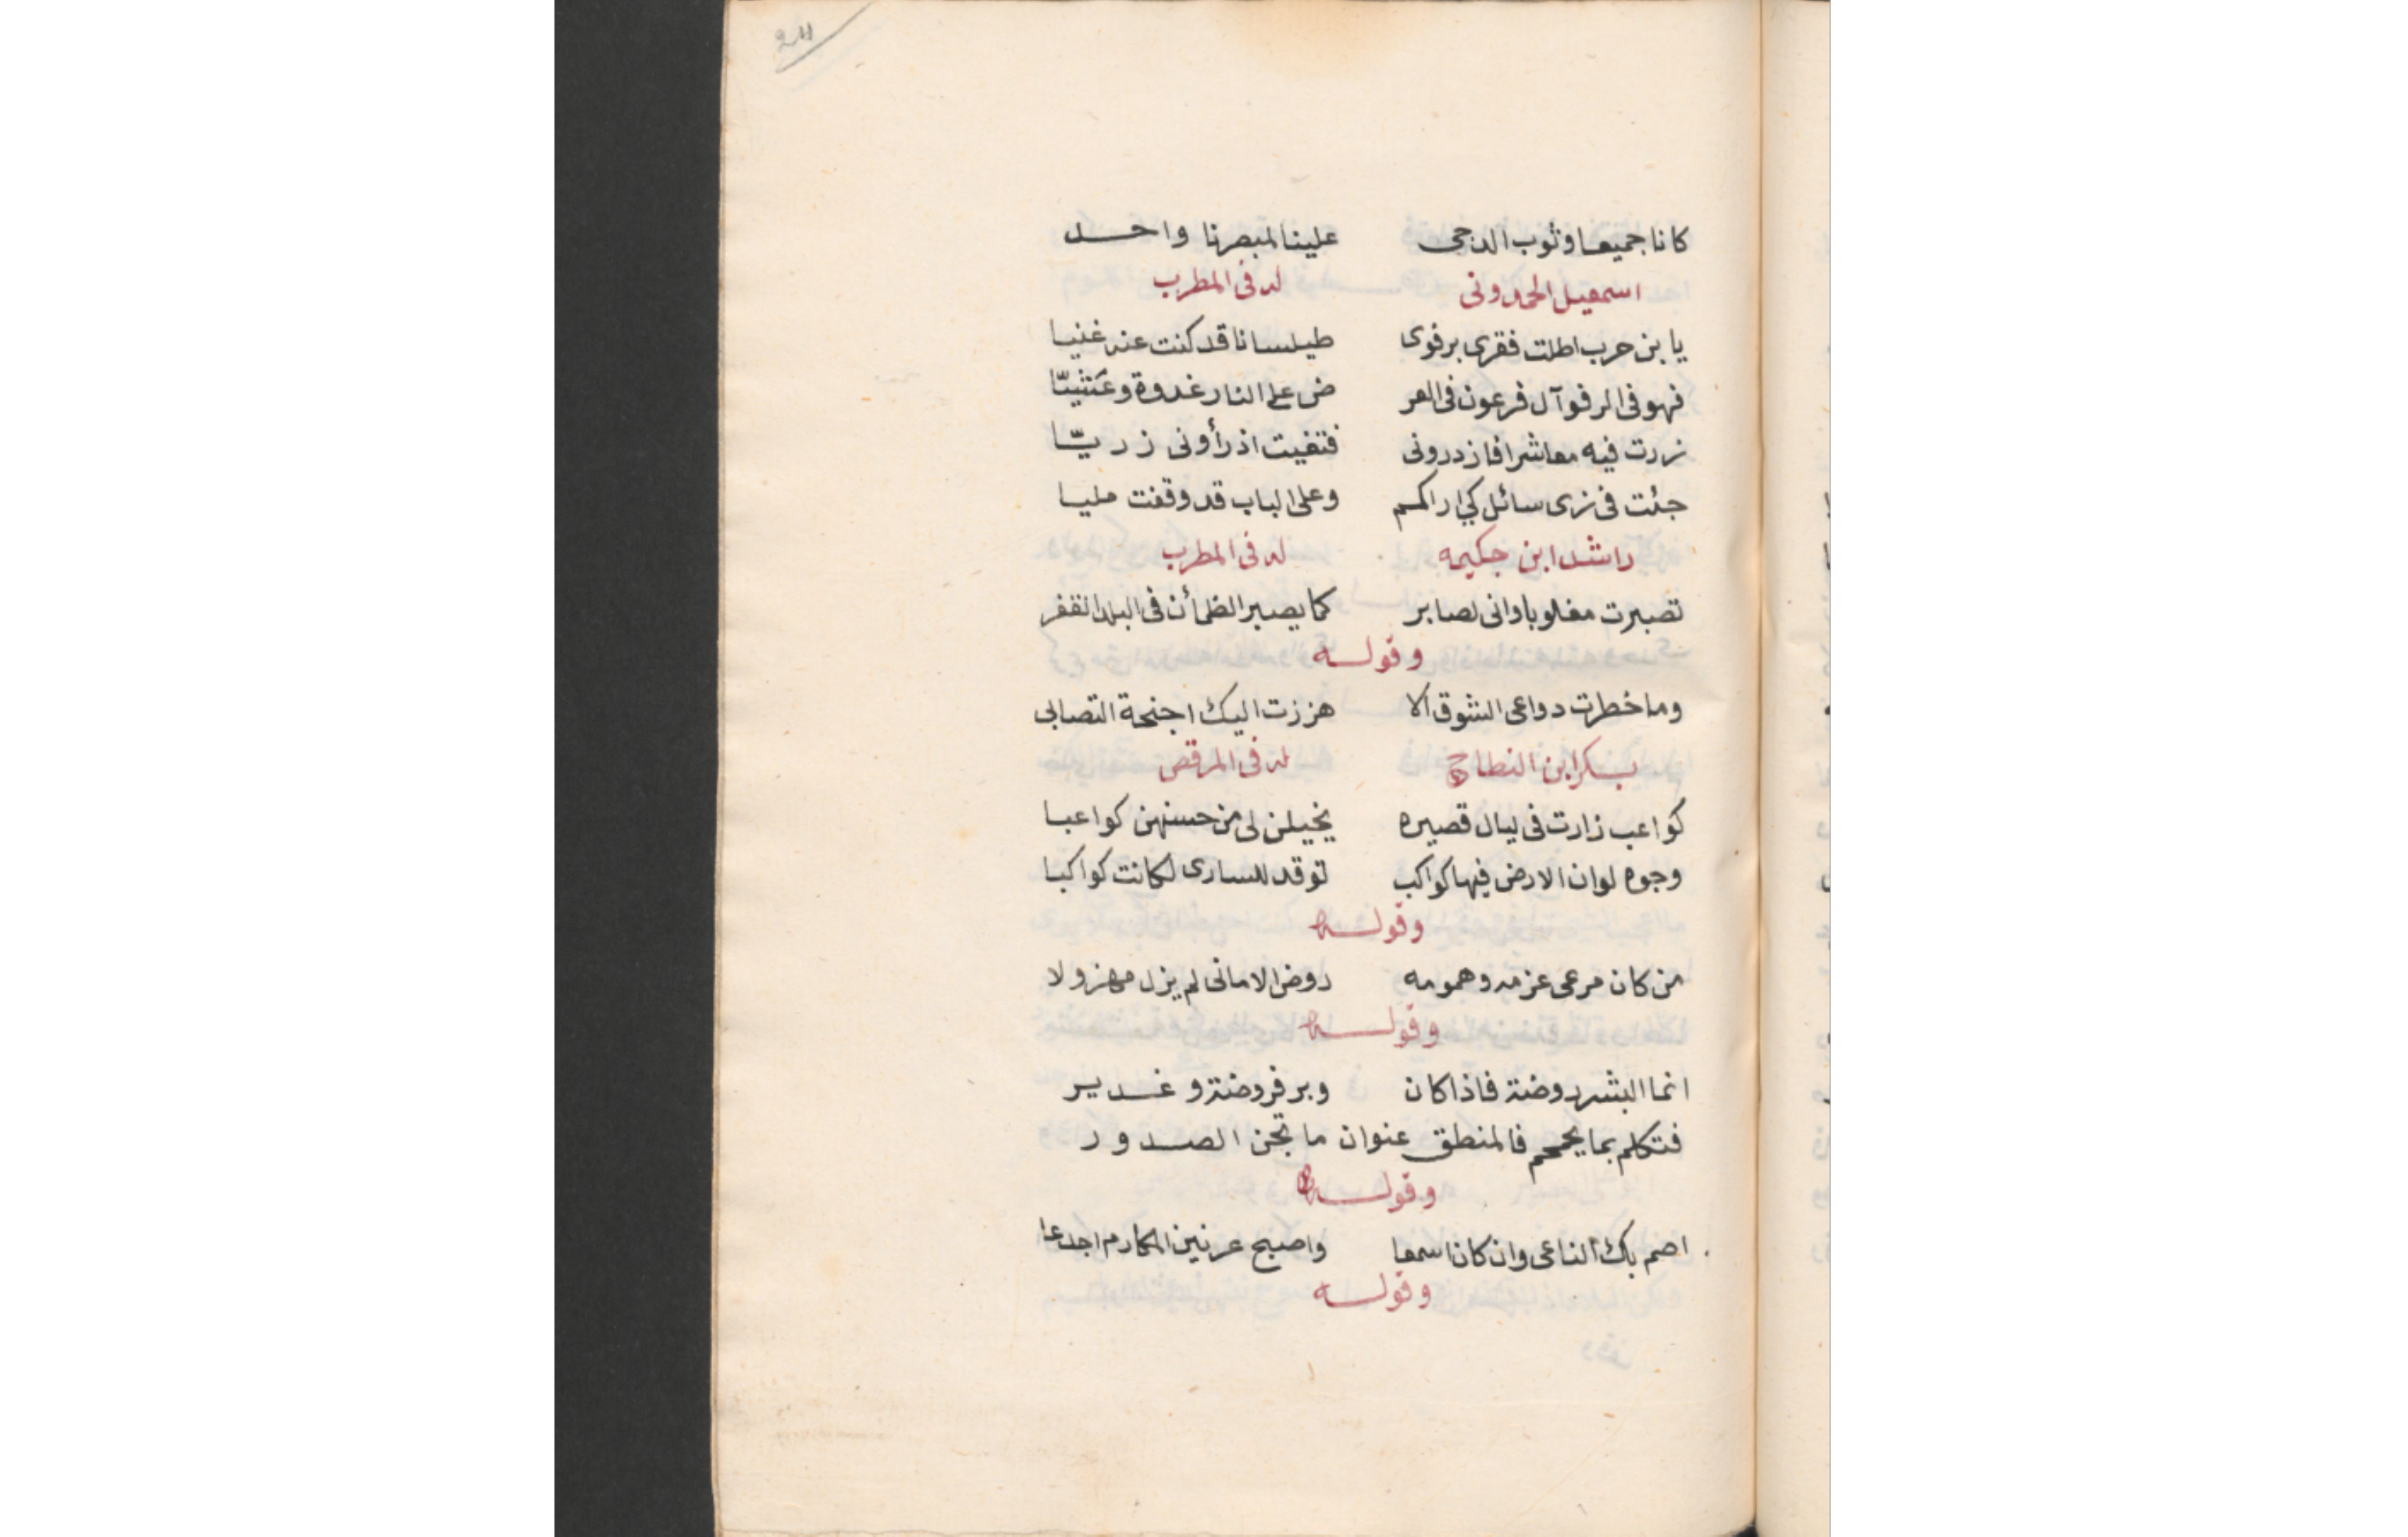 كانا جميعا وثوب الدجى علينا لمبصرنا واحد
اسمعيل الحمدونى له فى المطرب
يا بن حرب اطلت فقرى برفوى طيلسانا قد كنت عنه غنيا
فهو فى الرفو آل فرعون فى العر ض على النار غدوة وعشيّا
زرت فيه معاشرا فازدرونى فتغيت اذ رأونى زريّا
جئت فى زى سائل كى اراكم وعلى الباب قد وقفت مليا
راشد ابن حكيمه له فى المطرب
تصبرت مغلوبا وانى لصابر كما يصبر الظمأن فى البلد القفر
وقوله
وما خطرت دواعى الشوق الا هززت اليك اجنحة التصابى
بكر ابن النطاح له فى المرقص
كواعب زارت فى ليال قصيره يخيلن لى من حسنهن كواعبا
وجوه لو ان الارض فيها كواكب توقد للسارى لكانت كواكبا
وقوله
من كان مرعى عزمه وهمومه روض الامانى لم يزل مهزولا
وقوله
انما البشر روضة فاذا كان وبر فروضة وغدير
فتكلم بما يجمجم فالمنطق عنوان ما تجن الصدور
وقوله
اصم بك الناعى وان كان اسمعا واصبح عرنين المكارم اجدعا
وقوله